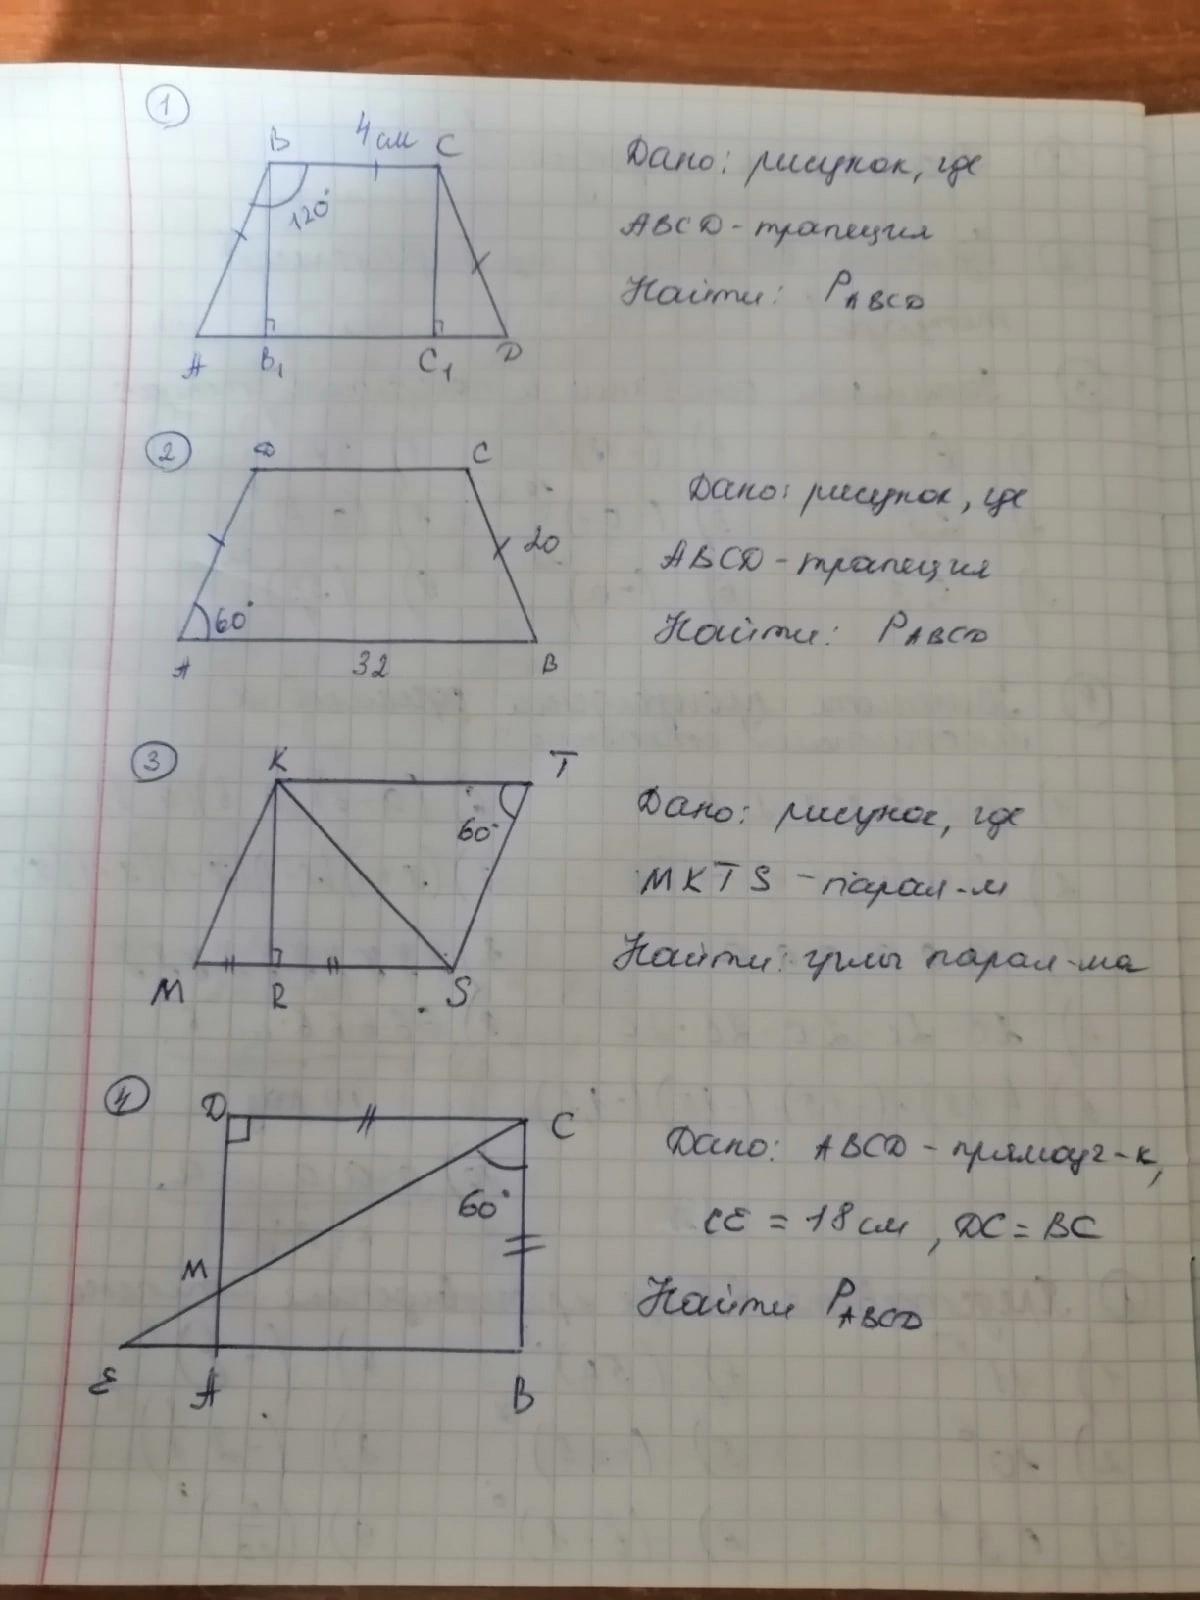 1
B 4см C
120°
A B₁ C₁ D
Дано: рисунок, где
ABCD - трапеция
Найти: P ABCD
2
D C
20
60°
A 32 B
Дано: рисунок, где
ABCD - трапеция
Найти: P ABCD
3
K T
60°
M R S
Дано: рисунок, где
MKTS - парал-м
Найти: углы парал-ма
4
D C
60°
M
E A B
Дано: ABCD - прямоуг-к,
CE = 18 см, DC = BC
Найти P ABCD